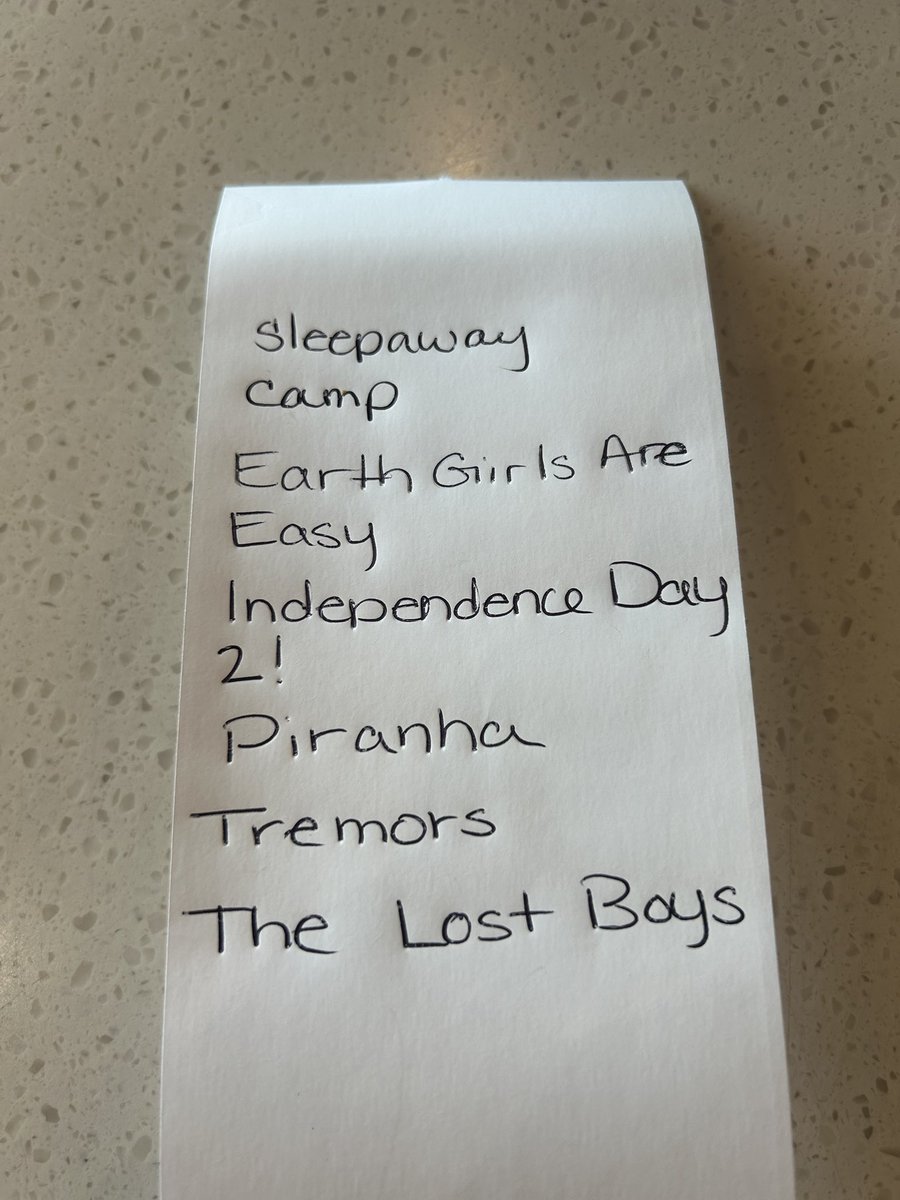 Sleepaway
Camp
Earth Girls Are
Easy
Independence Day
2!
Piranha
Tremors
The Lost Boys